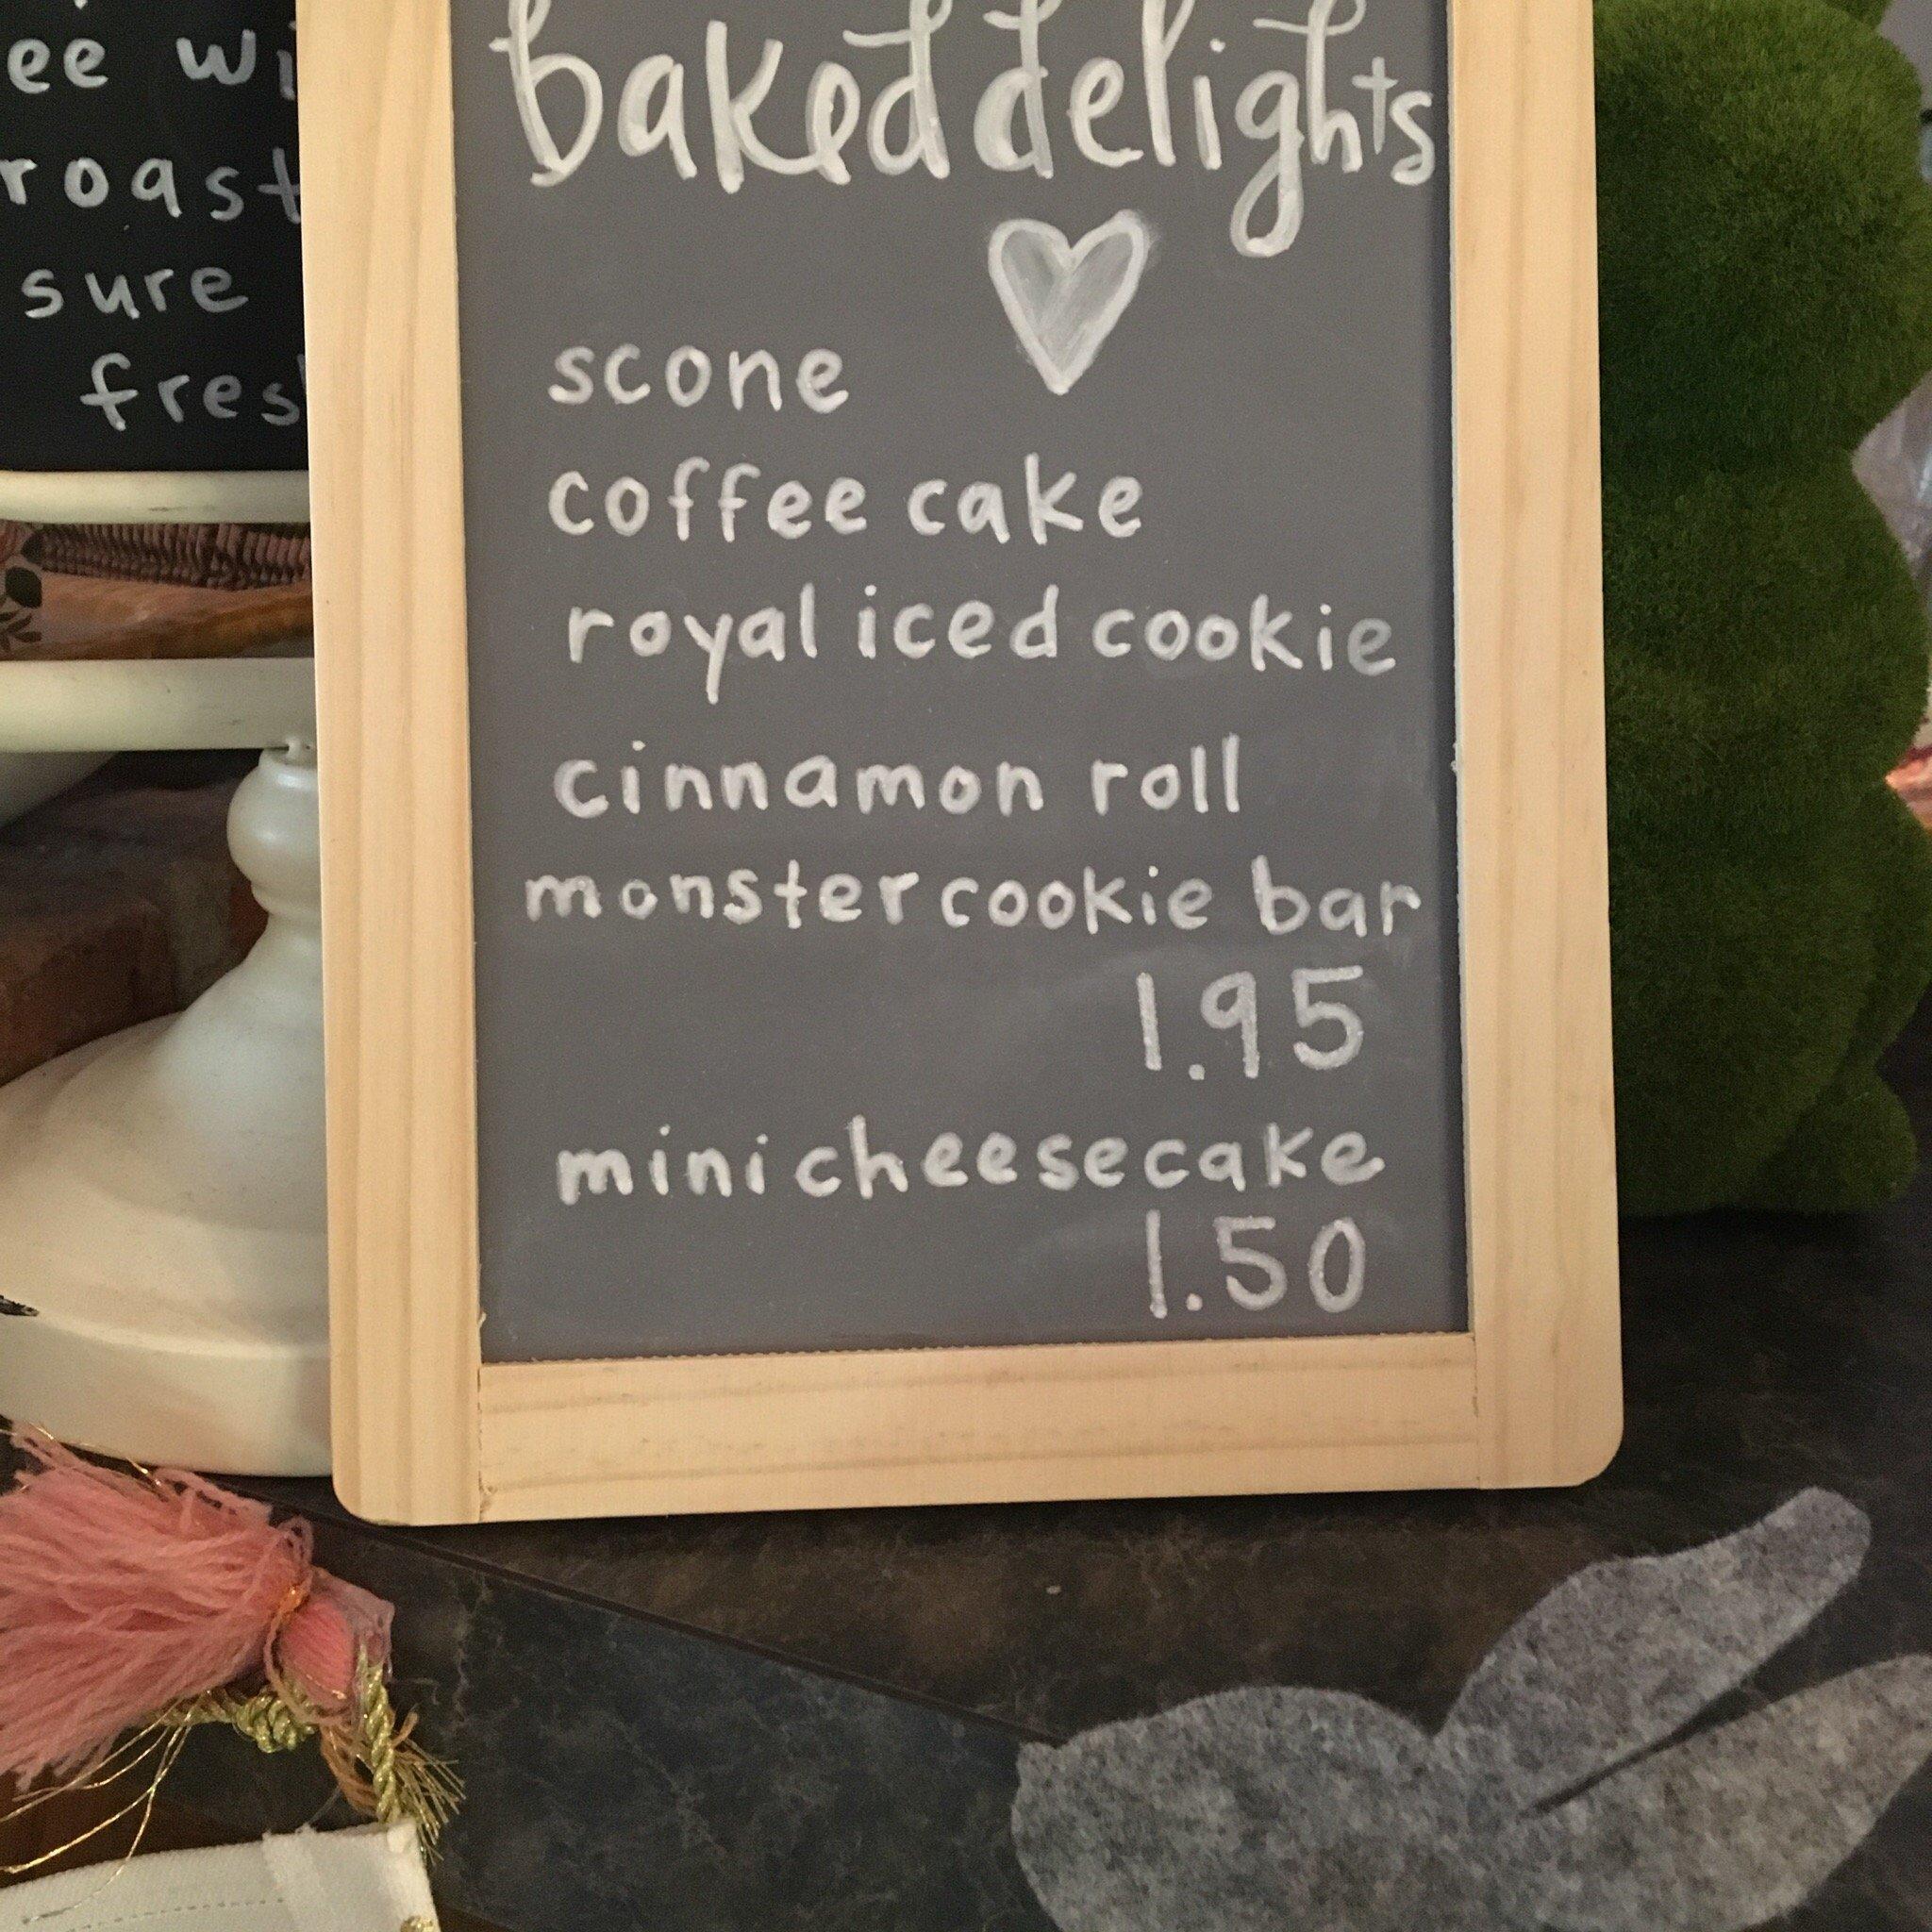 ee
roast
sure
baked delights
scone
coffee cake
royal iced cookie
cinnamon roll
monster cookie bar
1.95
mini cheesecake
1.50